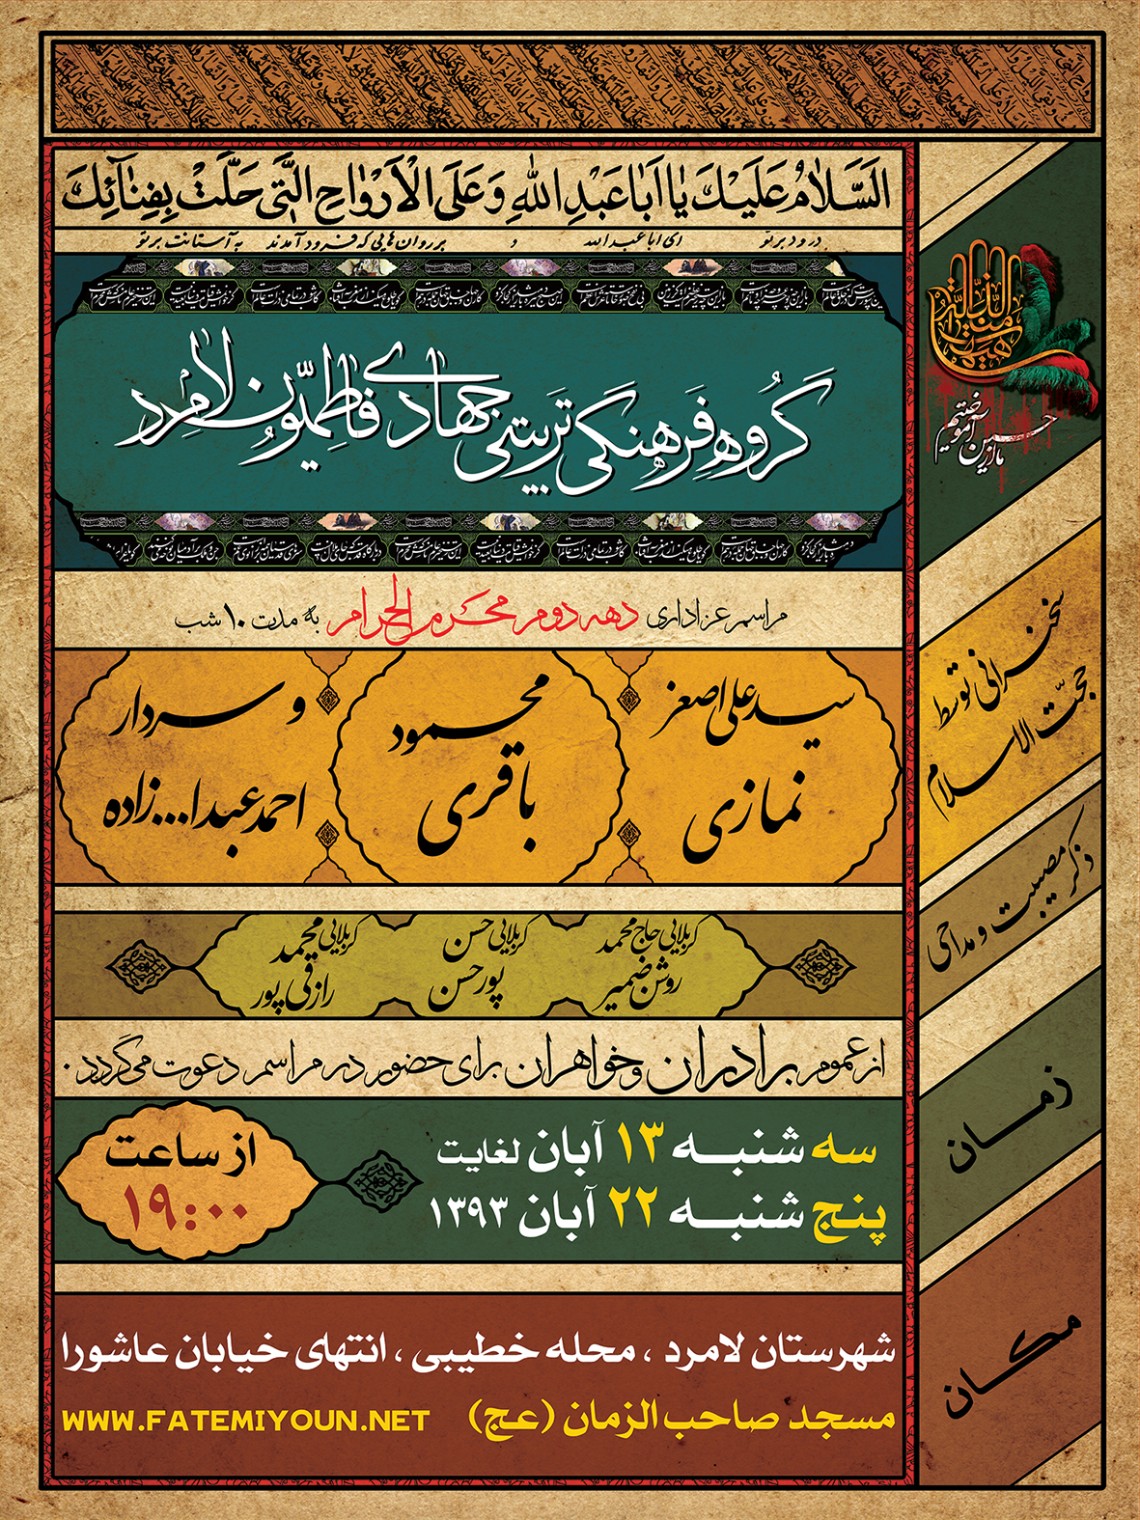 اَلسَّلامُ عَلَيْكَ يا اَباعَبْدِاللهِ وَ عَلَى الْاَرْواحِ الَّتي حَلَّتْ بِفِنائِكَ
درود بر تو ای ابا عبدالله و بر روان هایی که فرود آمدند به آستانت بر تو
گروه فرهنگی تربیتی جهادی فاطمیّون لامرد
هیهات منا الذلة
ما از حسین آموختیم
مراسم عزاداری دهه دوم محرم الحرام به مدت ۱۰ شب
سخنرانی توسط
حجت الاسلام
سید علی اصغر
نمازی
محمود
باقری
و سردار
احمد عبدا...زاده
ذکر مصیبت و مداحی
کربلایی حاج محمد
روشن ضمیر
کربلایی حسن
پورحسن
کربلایی محمد
رازقی پور
از عموم برادران و خواهران برای حضور در مراسم دعوت می گردد.
زمان
سه شنبه ۱۳ آبان لغایت
پنج شنبه ۲۲ آبان ۱۳۹۳
از ساعت
۱۹:۰۰
مکان
شهرستان لامرد ، محله خطیبی ، انتهای خیابان عاشورا
مسجد صاحب الزمان (عج) WWW.FATEMIYOUN.NET